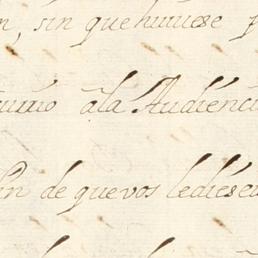 n, sin que huuiese
ala Audienci
in de que vos ledièse